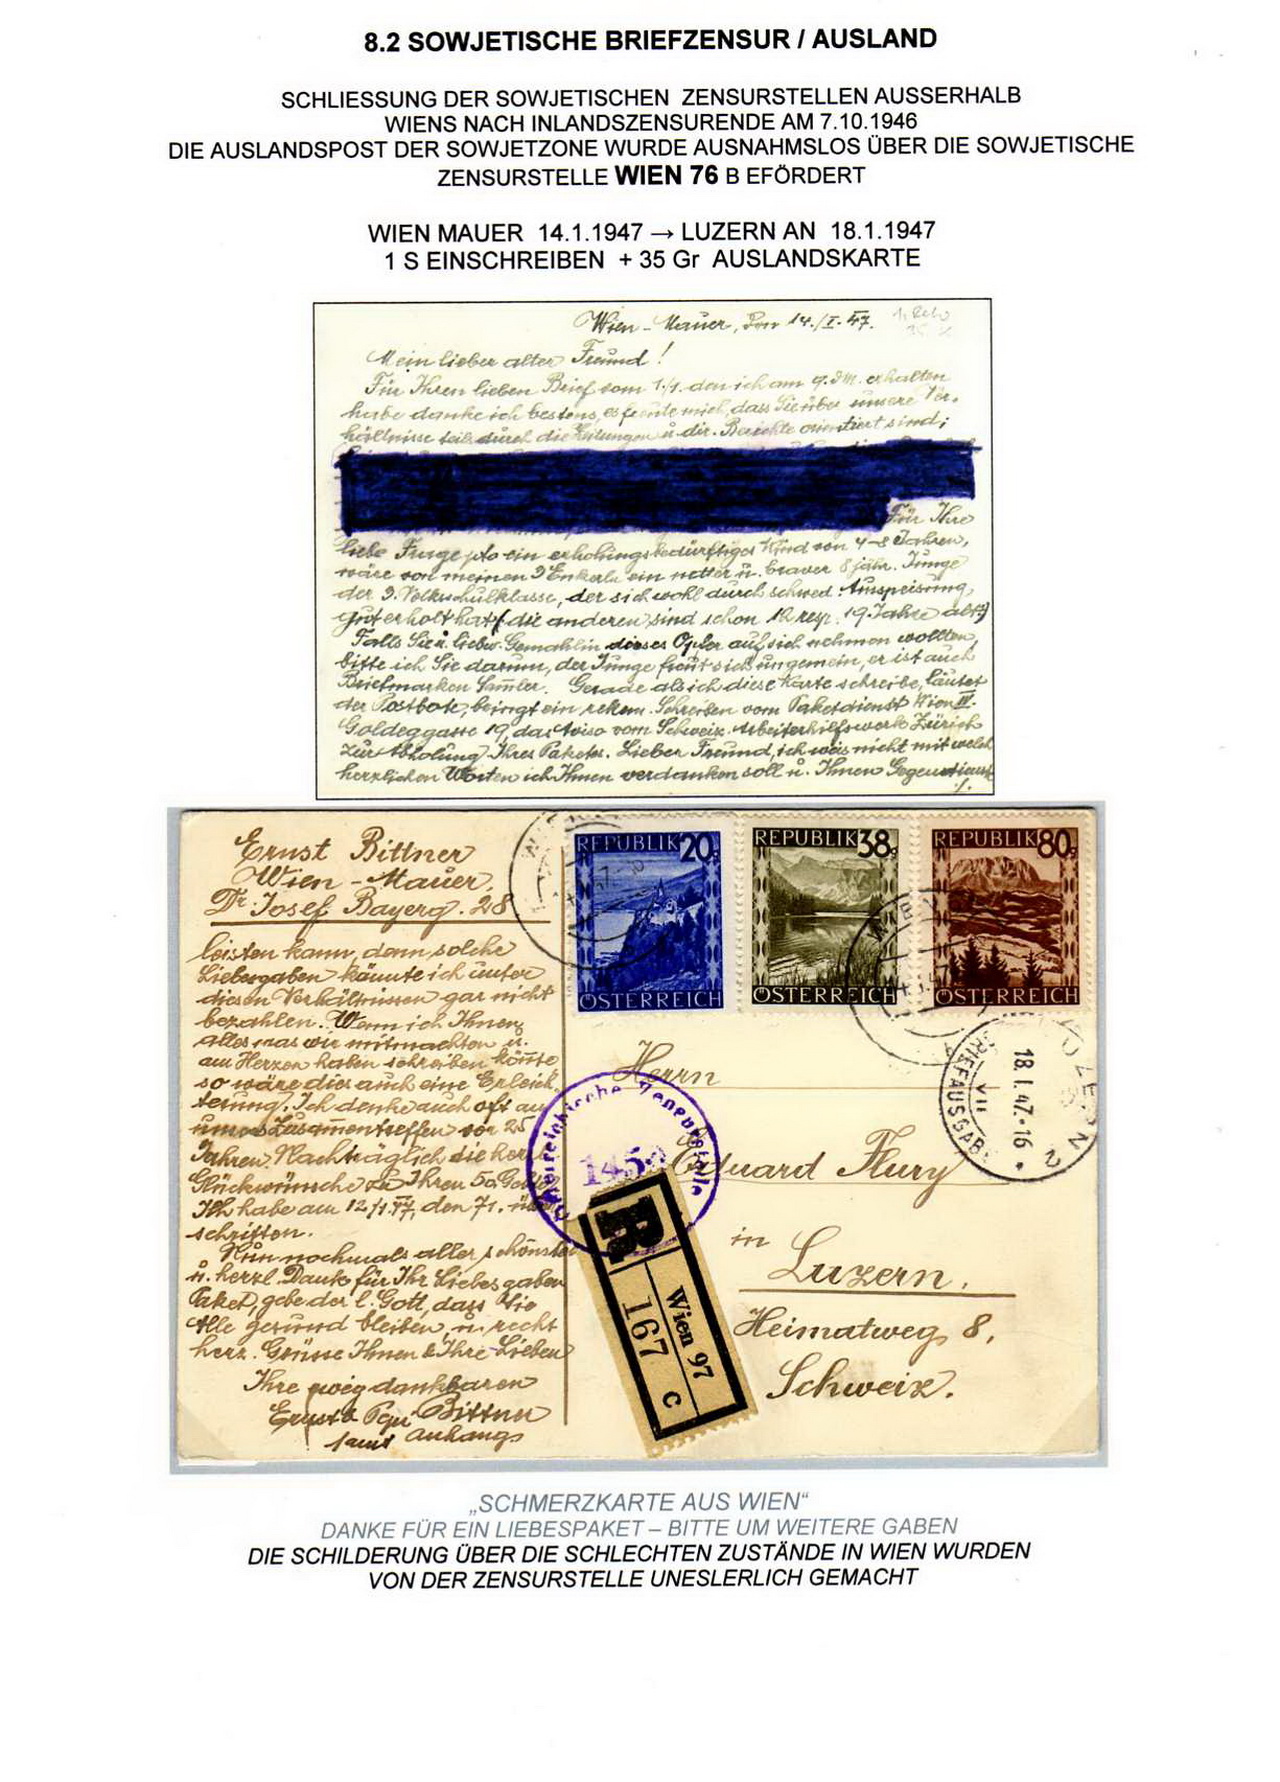 8.2 SOWJETISCHE BRIEFZENSUR / AUSLAND
SCHLIESSUNG DER SOWJETISCHEN ZENSURSTELLEN AUSSERHALB
WIENS NACH INLANDSZENSURENDE AM 7.10.1946
DIE AUSLANDSPOST DER SOWJETZONE WURDE AUSNAHMSLOS ÜBER DIE SOWJETISCHE
ZENSURSTELLE WIEN 76 B EFÖRDERT
WIEN MAUER 14.1.1947 → LUZERN AN 18.1.1947
1 S EINSCHREIBEN + 35 Gr AUSLANDSKARTE
Wien - Mauer, den 14./I. 47.
Mein lieber alter Freund!
Für Ihren lieben Brief vom 1./1. den ich am 9. d M. erhalten
habe danke ich bestens, es freute mich, dass Sie über unsere Ver-
hältnisse teils durch die Zeitungen u. dir. Berichte orientiert sind;
Für Ihre
liebe Frage pto ein erholungsbedürftiges Kind von 4-8 Jahren,
wäre von meinen 3 Enkerln ein netter u. braver 8 jähr. Junge
der 3. Volksschulklasse, der sich wohl durch schwed. Ausspeisung
gut erholt hat (die anderen sind schon 12 resp. 19 Jahre alt)
Falls Sie u. liebw. Gemahlin dieses Opfer auf sich nehmen wollten,
bitte ich Sie darum, der Junge freut sich ungemein, er ist auch
Briefmarken Sam̅ler. Gerade als ich diese Karte schreibe, läutet
der Postbote, bringt ein rekom. Schreiben vom Paketdienst Wien
Goldeggasse 19, das Aviso vom Schweiz. Arbeiterhilfswerk Zürich
zur Abholung Ihres Paketes. Lieber Freund, ich weis nicht mit welch
herzlichen Worten ich Ihnen verdanken soll u. Ihnen Gegendienst
./.
Ernst Bittner
Wien - Mauer,
Dr. Josef Bayerg. 28
leisten kann, denn solche
Liebesgaben könnte ich unter
diesen Verhältnissen gar nicht
bezahlen. Wenn ich Ihnen
alles was wir mitmachten u.
am Herzen haben schreiben könnte
so wäre dies auch eine Erleich-
terung. Ich denke auch oft an
unser Zusam̅entreffen vor 25
Jahren. Nachträglich die herzl
Glückwünsche zu Ihren 50
Ich habe am 12/1. 47, den 71.
schritten.
Nun nochmals aller schönsten
u. herzl. Dank für Ihr Liebesgaben
Paket, gebe der l. Gott, dass Sie
Alle gesund bleiben, u. recht
herz. Grüsse Ihnen & Ihre Lieben
Ihre ewig dankbaren
Ernst & Bittner
samt Anhang
REPUBLIK 20g
ÖSTERREICH
REPUBLIK 38g
ÖSTERREICH
REPUBLIK 80g
ÖSTERREICH
WIEN
LUZERN 2
18.I.47.-16
VII
BRIEFAUSGABE
Österreichische Zensurstelle
145
R
Wien 97
167
c
Herrn
Eduard Flury
in
Luzern.
Heimatweg 8,
Schweiz.
„SCHMERZKARTE AUS WIEN“
DANKE FÜR EIN LIEBESPAKET – BITTE UM WEITERE GABEN
DIE SCHILDERUNG ÜBER DIE SCHLECHTEN ZUSTÄNDE IN WIEN WURDEN
VON DER ZENSURSTELLE UNESLERLICH GEMACHT